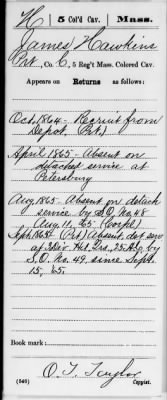 H | 5 Col'd Cav. | Mass.
James Hawkins
Pvt., Co. C, 5 Reg't Mass. Colored Cav.
Appears on
Returns as follows:
Oct. 1864 - Recruit from
Depot. (Pvt)
April 1865 - Absent on
detached service at
Petersburg
Aug. 1865 - Absent on detach
service by S.O. No. 48
Aug. 11, '65 (Corpl)
(Pvt) Absent, det serv
Hd. Qrs. 25 A.C. by
S.O. No. 49, since Sept.
15, 65.
Book mark:
O. T. Taylor
(546) Copyist.